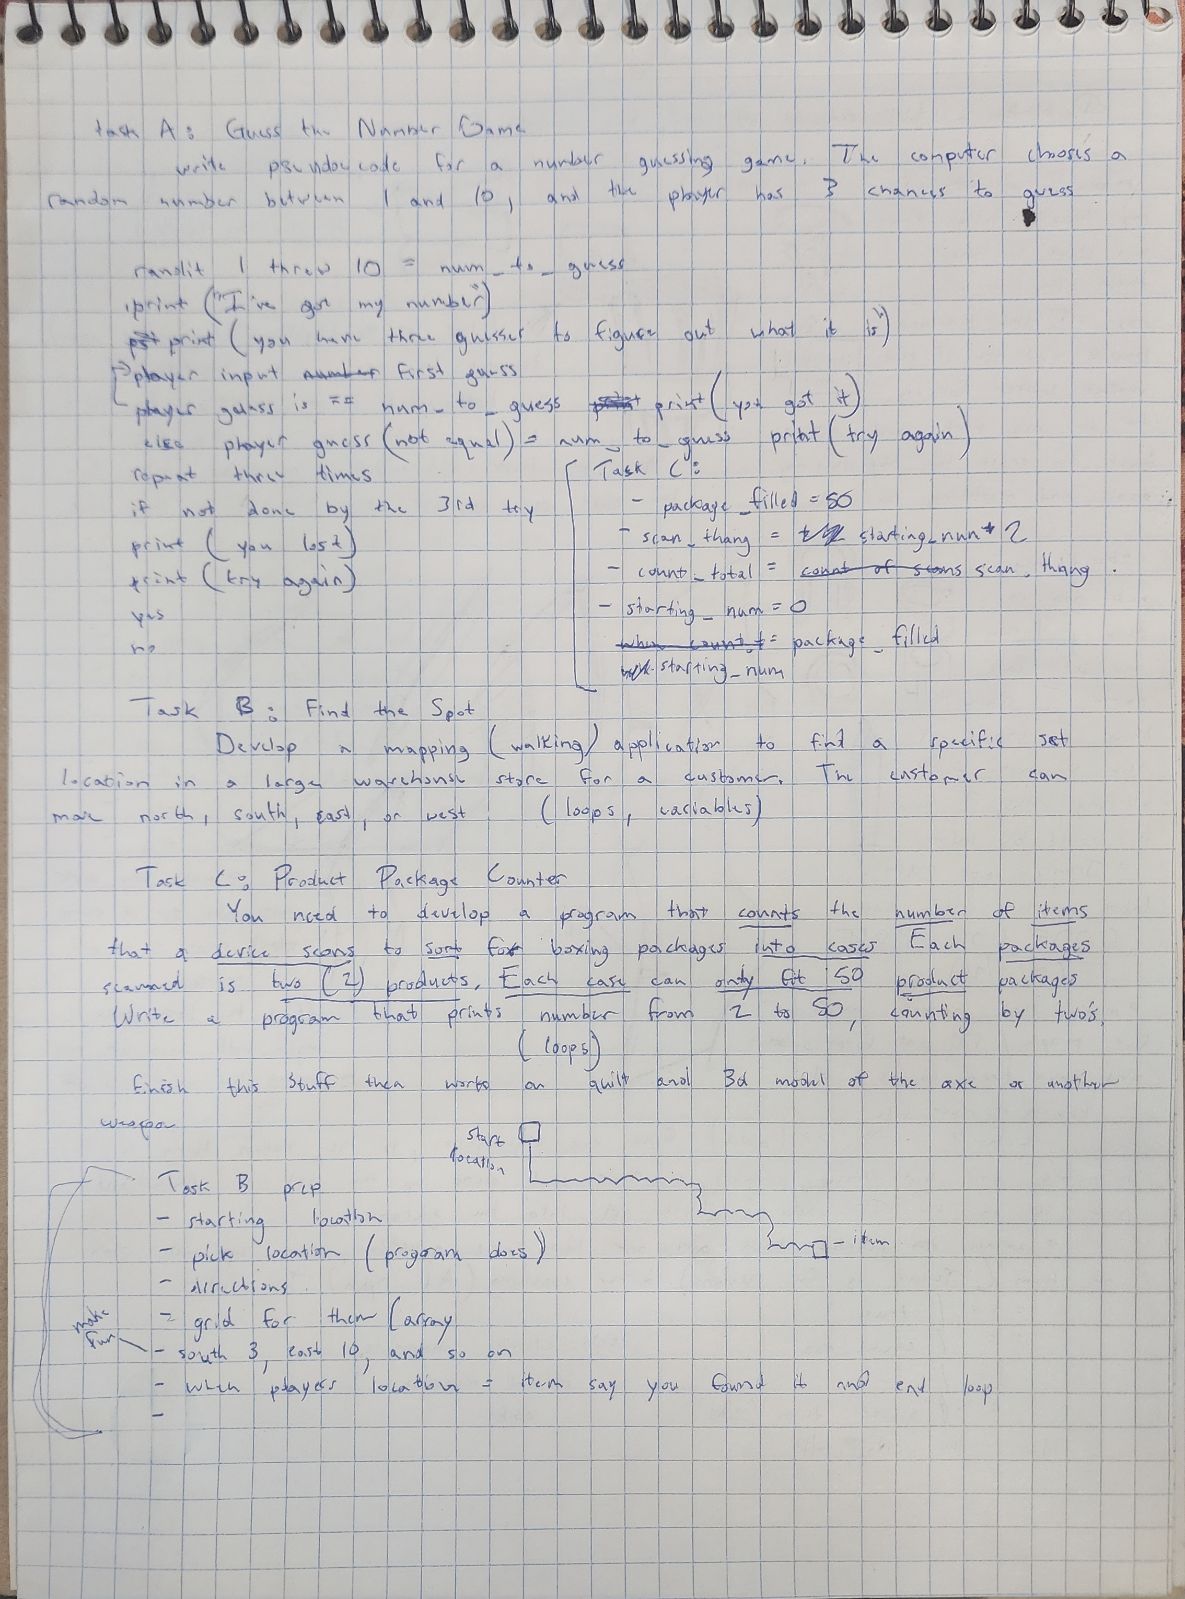 task A: Guess the Number Game
write pseudocode for a number guessing game. The computer chooses a
random number between 1 and 10, and the player has 3 chances to guess
randit 1 threw 10 = num_to_guess
print ("I've got my number")
print (you have three guesses to figure out what it is")
player input number first guess
player guess is == num_to_guess print (you got it)
else player guess (not equal) = num_to_guess print (try again)
repeat three times
if not done by the 3rd try
print (you lost)
print (try again)
yes
no
Task C:
- package_filled = 50
- scan_thang = starting_num * 2
- count_total = count of scans scan_thang.
- starting_num = 0
when count_t = package_filled
starting_num
Task B: Find the Spot
Develop a mapping (walking) application to find a specific set
location in a large warehouse store for a customer. The customer can
move north, south, east, or west (loops, variables)
Task C: Product Package Counter
You need to develop a program that counts the number of items
that a device scans to sort for boxing packages into cases Each packages
scanned is two (2) products. Each case can only fit 50 product packages
Write a program that prints number from 2 to 50, counting by two's.
(loops)
finish this stuff then work on quilt and 3d model of the axe or another
weapon
start
location
- item
Task B prep
- starting location
- pick location (program does)
- directions
- grid for them (array
make
fun
- south 3, east 10, and so on
- when players location = item say you found it and end loop
-